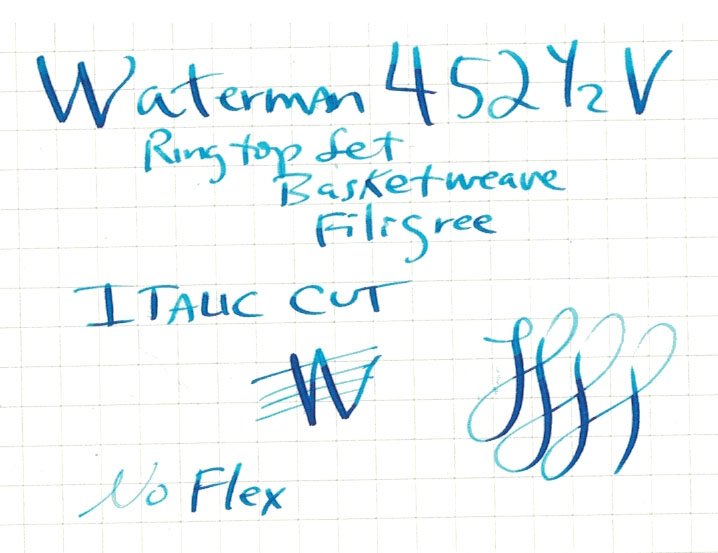 Waterman 452 1/2 V
Ring top Set
Basketweave
Filigree
ITALIC CUT
W
No Flex